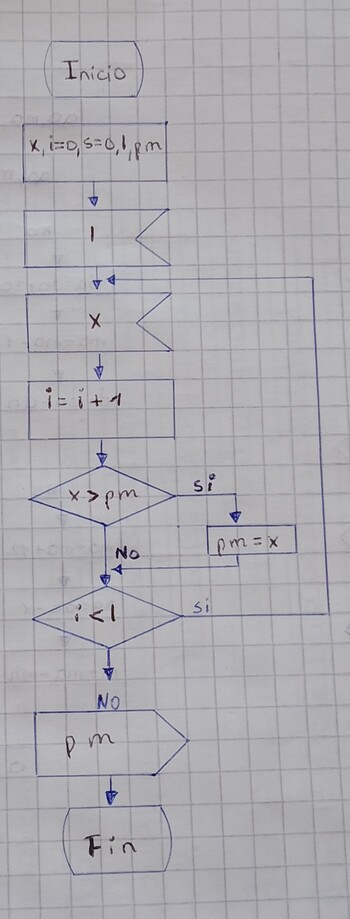 Inicio
x, i=0, s=0, l, pm
l
x
i = i + 1
x > pm
si
pm = x
No
i < l
si
NO
pm
Fin